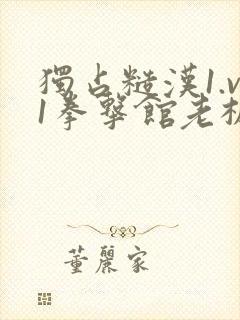 獨占糙漢1.v
1拳擊館老板
董麗家